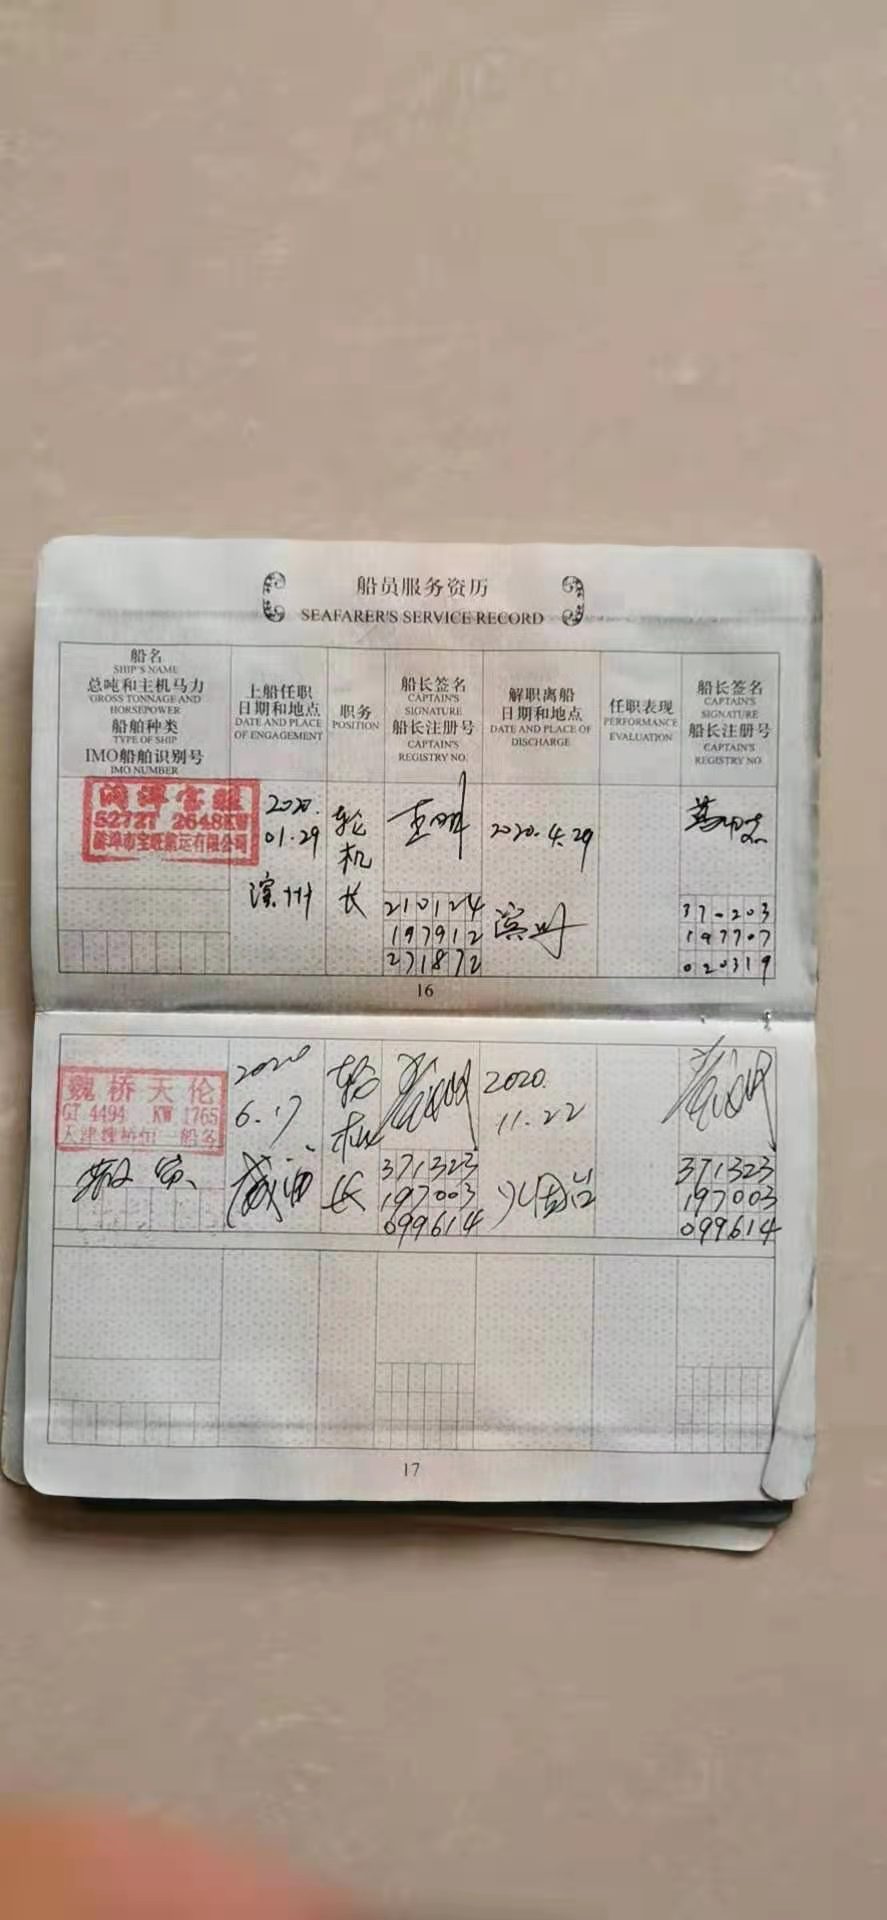 船员服务资历
SEAFARER'S SERVICE RECORD
船名
SHIP'S NAME
总吨和主机马力
GROSS TONNAGE AND
HORSEPOWER
船舶种类
TYPE OF SHIP
IMO船舶识别号
IMO NUMBER
上船任职
日期和地点
DATE AND PLACE
OF ENGAGEMENT
职务
POSITION
船长签名
CAPTAIN'S
SIGNATURE
船长注册号
CAPTAIN'S
REGISTRY NO.
解职离船
日期和地点
DATE AND PLACE OF
DISCHARGE
任职表现
PERFORMANCE
EVALUATION
船长签名
CAPTAIN'S
SIGNATURE
船长注册号
CAPTAIN'S
REGISTRY NO.
5272T 2648KW
市宝旺航运有限公司
2020.
01.29
滨州
轮
机
长
210124
197912
271872
2020.4.29
滨州
197707
020319
16
魏桥天伦
GT 4494 KW 1765
2020
6.17
轮
机
长
371323
197003
099614
2020.
11.22
371323
197003
099614
17